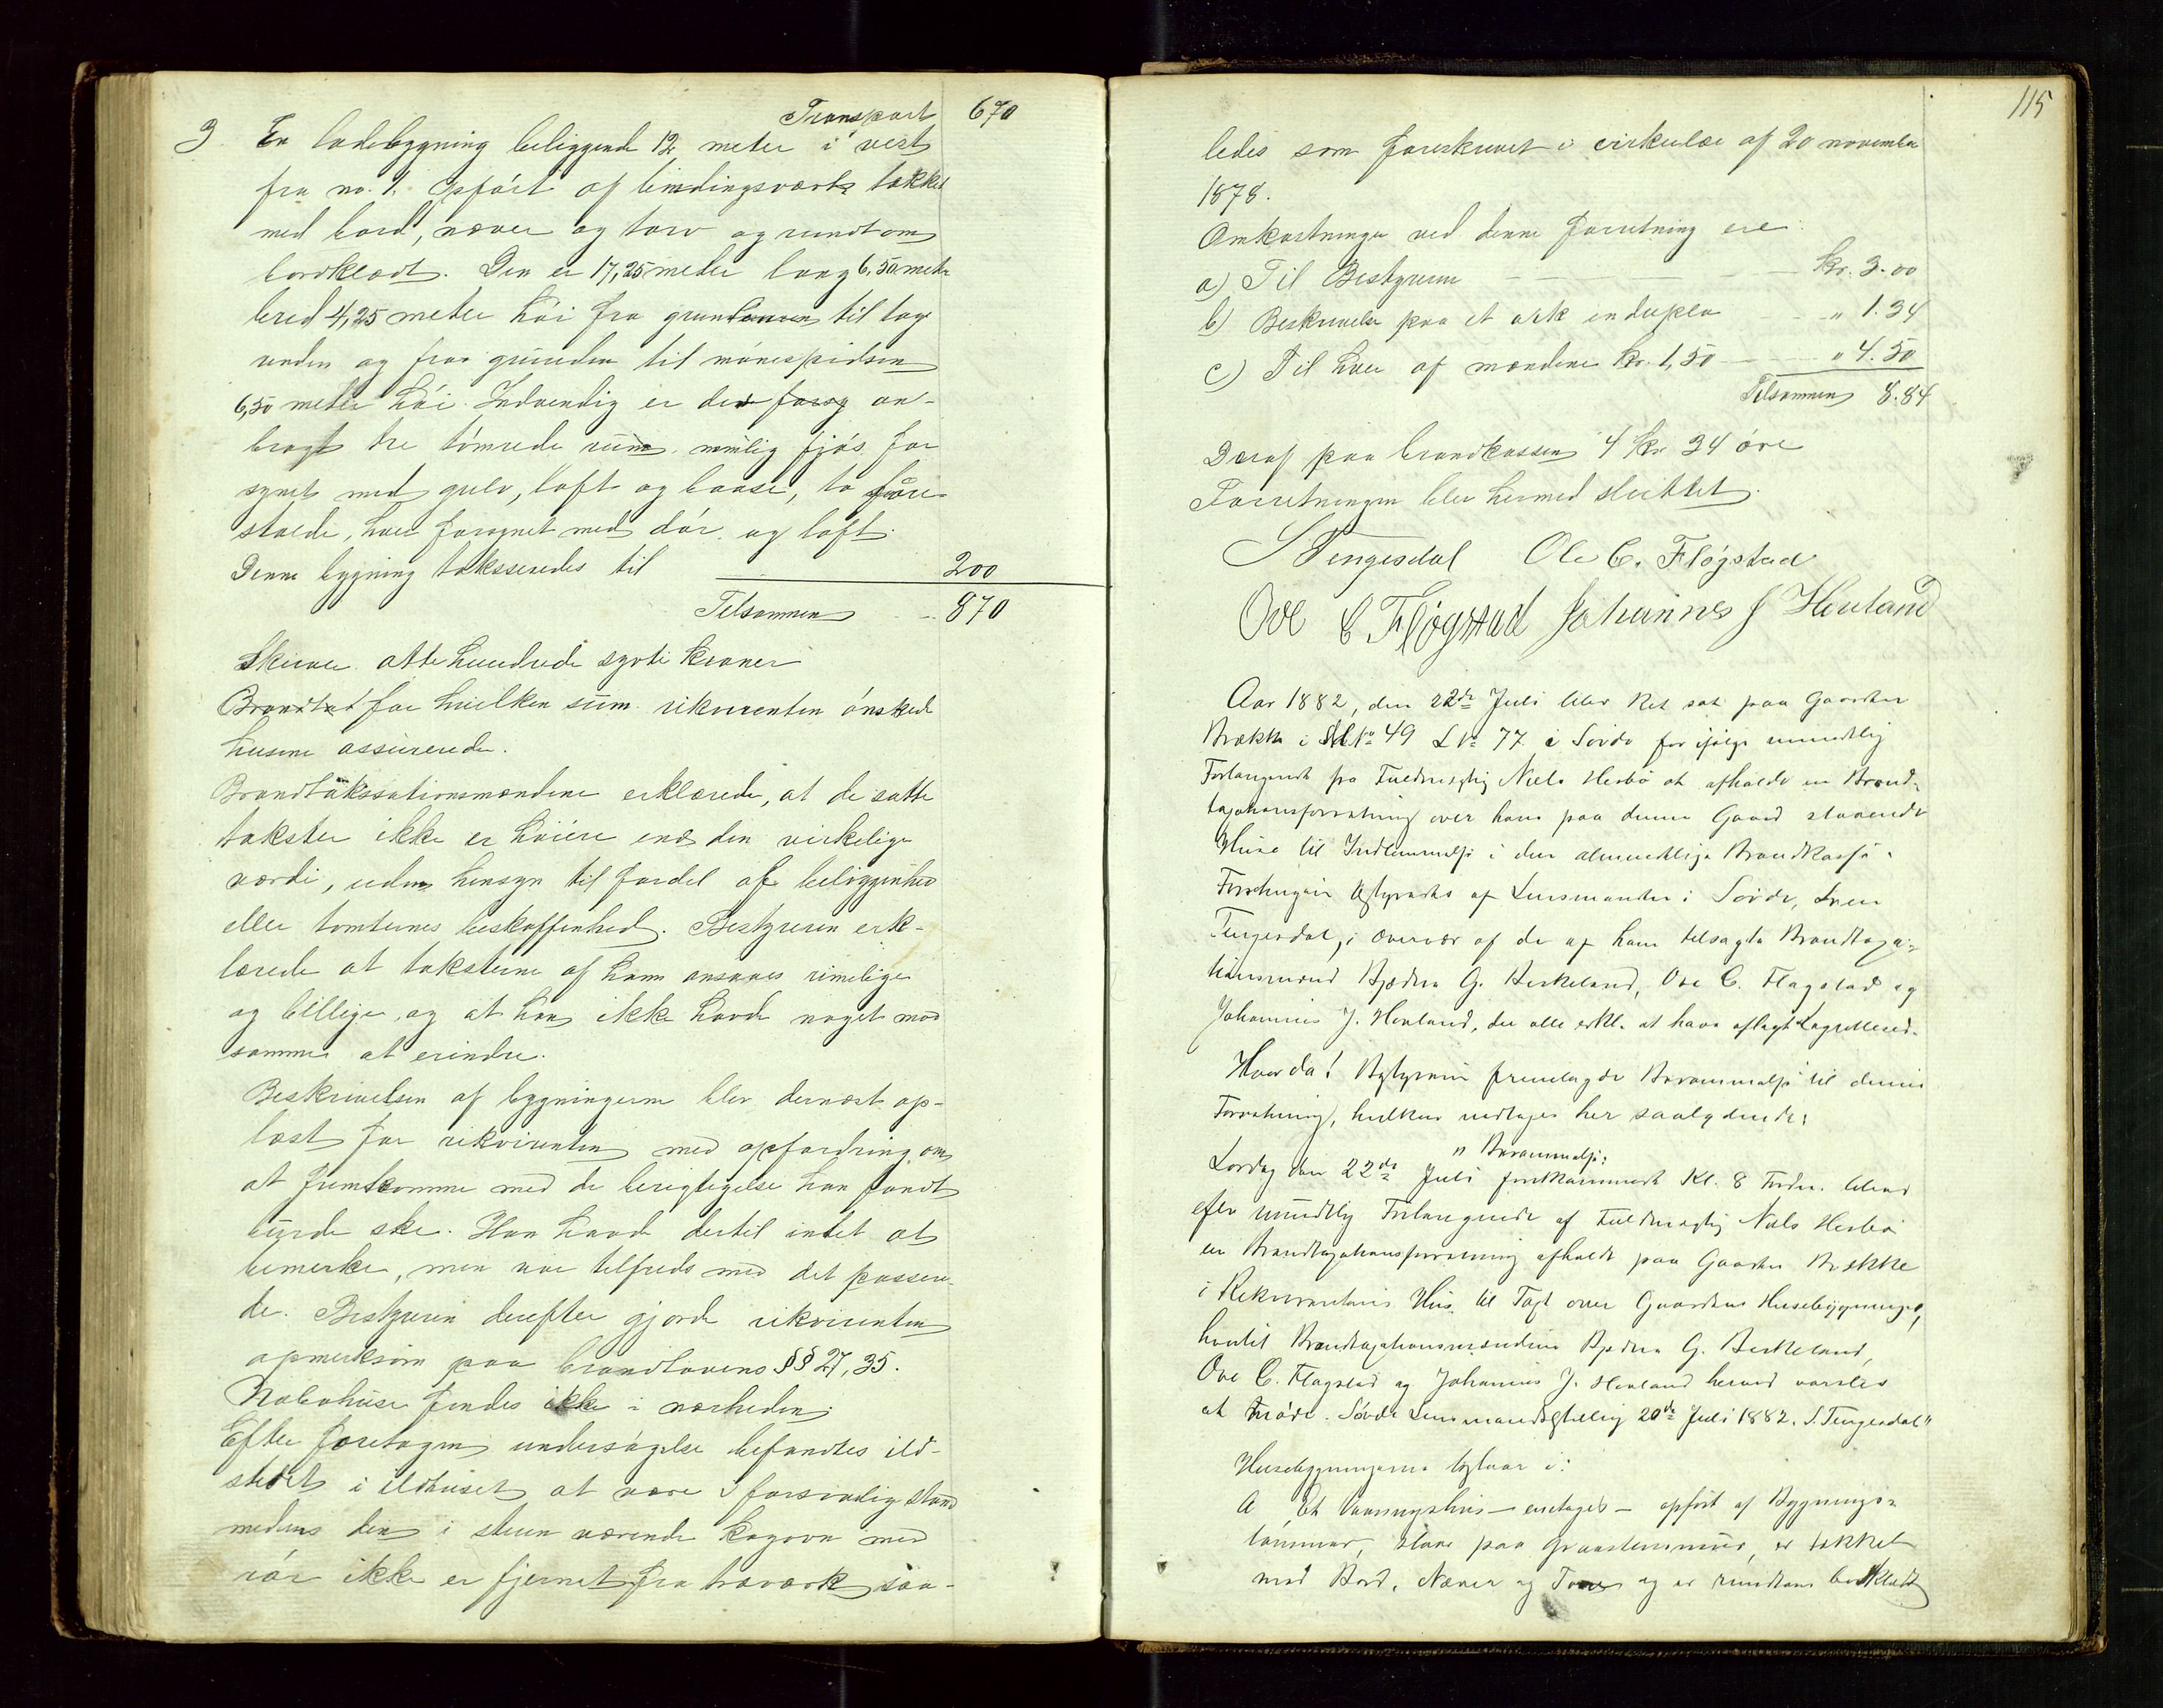 Transport 670
3 En ladebygning beliggende 12 meter i vest
fra no. 1. Opført af bindingsværk takket
med bord, næver og torv og rundt om
bordklædt. Den er 17,25 meter lang 6,50 meter
bred 4,25 meter høi fra grundmuren til tag-
enden og fra grunden til mønespidsen
6,50 meter høi. Indvendig er der forsy an-
bragt tre tømrede rum, nemlig fjøs, for
synet med gulv, loft og baase, to faare-
stalde, hver forsynet med dør og loft.
Denne bygning taksseredes til 200
Tilsammen 870
Skriver otte hundrede sytti kroner
Brandtat for hvilken sum rikvirenten ønskede
husene assurerede.
Brandtakssationsmændene erklærede, at de satte
takster ikke er høiere end den virkelige
værdi, uden hensyn til fordel af beliggenhed
eller tomternes beskaffenhed. Bestyreren erk-
lærede at taksterne af ham ansaaes rimelige
og billige, og at han ikke havde noget mod
samme at erindre.
Beskrivelsen af bygningerne blev dernæst op-
læst for rikvirenten med opfordring om
at fremkomme med de berigtigelse han fandt
burde ske. Han havde dertil intet at
bemerke, men var tilfreds med det passere-
de. Bestyreren derefter gjorde rikvirenten
opmerksom paa brandlovens §§ 27, 35.
Nabohuse findes ikke i nærheden.
Efter foretagen undersøgelse befandtes ild-
stedet i ildhuset at være i forsvarlig stand
medens den i stuen værende kogovn med
rør ikke er fjernet fra træværk saa-
115
ledes som foreskrevet i cirkulær af 20 november
1878.
Omkostninger ved denne forretning ere:
a) Til Bestyreren kr. 3.00
b) Beskrivelse paa et ark in duplo " 1.34
c) Til hver af mændene kr. 1,50 " 4.50
Tilsammen 8.84
Deraf paa brandkassen 4 kr 34 øre
Forretningen blev hermed sluttet.
S Tengesdal Ole C. Fløgstad
Ove C Fløgstad Johannes J Hovland
Aar 1882, den 22de Juli blev Ret sat paa Gaarden
Brække i M No 49 L No 77 i Søvde for ifølge mundtlig
Forlangende fra Fuldmægtig Niels Hesbø at afholde en Brand-
taxationsforretning over hans paa denne Gaard staaende
Huse til Indlemmelse i den almindelige Brandkasse.
Forretningen bestyredes af Lensmanden i Søvde, Sven
Tengesdal, i Overvær af de af ham tilsagte Brandtaxa-
tionsmænd Bjedne G. Birkeland, Ove C. Fløgstad og
Johannes J. Hovland, der alle erkl. at have aflagt Lagretteed.
Hvorda! Bestyreren fremlagde Berammelse til denne
Forretning, hvilken indtages her saalydende:
"Berammelse:
Lørdag den 22de Juli førstkommende Kl. 8 Form. bliver
efter mundtlig Forlangende af Fuldmægtig Niels Hesbø
en Brandtaxationsforretning afholdt paa Gaarden Brække
i Rekvirentens Hus til Taxt over Gaardens Husebygninger,
hvortil Brandtaxationsmændene Bjedne G. Birkeland,
Ove C. Fløgstad og Johannes J. Hovland herved varsles
at møde. Søvde Lensmandsbestilling 20de Juli 1882. S. Tengesdal"
Husebygningerne bestaar i:
A Et Vaaningshus – enetages – opført af Bygnings-
tømmer, staar paa Graastensmuur, er tækket
med Bord, Næver og Torv og er rundtom bordklædt